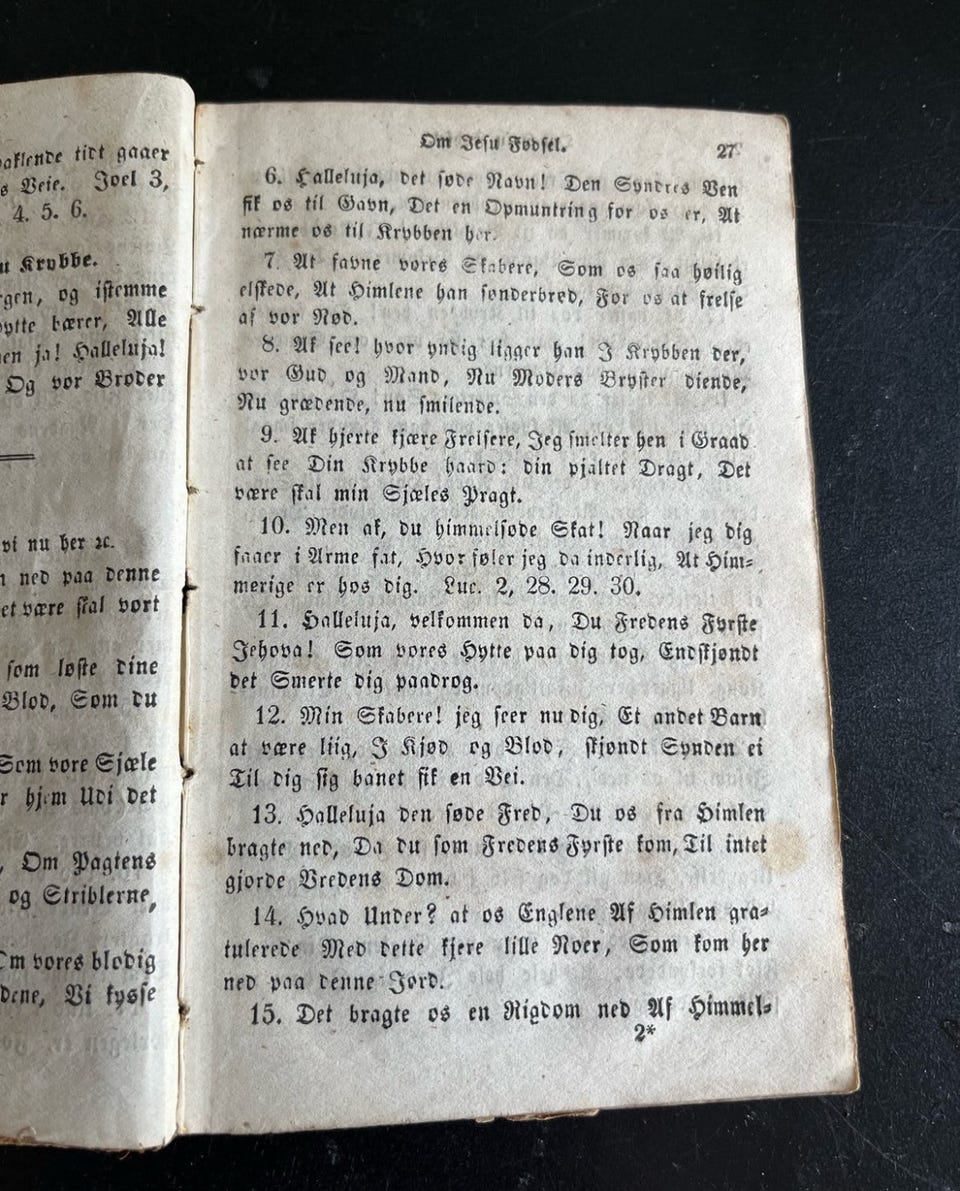 tidt gaaer
Veie. Joel 3,
4. 5. 6.
Krybbe.
og istemme
bærer, Alle
ja! Halleluja!
Og vor Broder
vi nu her ꝛc.
ned paa denne
være skal vort
som løste dine
Blod, Som du
Som vore Sjæle
hjem Udi det
Om Pagtens
og Striblerne,
Om vores blodig
Vi kysse
Om Jesu Fødsel.
27
6. Halleluja, det søde Navn! Den Syndres Ven
fik os til Gavn, Det en Opmuntring for os er, At
nærme os til Krybben her.
7. At favne vores Skabere, Som os saa høilig
elskede, At Himlene han sønderbrød, For os at frelse
af vor Nød.
8. Ak see! hvor yndig ligger han I Krybben der,
vor Gud og Mand, Nu Moders Bryster diende,
Nu grædende, nu smilende.
9. Ak hjerte kjære Frelsere, Jeg smelter hen i Graad
at see Din Krybbe haard: din pjaltet Dragt, Det
være skal min Sjæles Pragt.
10. Men ak, du himmelsøde Skat! Naar jeg dig
faaer i Arme fat, Hvor føler jeg da inderlig, At Him-
merige er hos dig. Luc. 2, 28. 29. 30.
11. Halleluja, velkommen da, Du Fredens Fyrste
Jehova! Som vores Hytte paa dig tog, Endskjøndt
det Smerte dig paadrog.
12. Min Skabere! jeg seer nu dig, Et andet Barn
at være liig, I Kjød og Blod, skjøndt Synden ei
Til dig sig banet fik en Vei.
13. Halleluja den søde Fred, Du os fra Himlen
bragte ned, Da du som Fredens Fyrste kom, Til intet
gjorde Vredens Dom.
14. Hvad Under? at os Englene Af Himlen gra-
tulerede Med dette kjere lille Noer, Som kom her
ned paa denne Jord.
15. Det bragte os en Rigdom ned Af Himmel-
2*